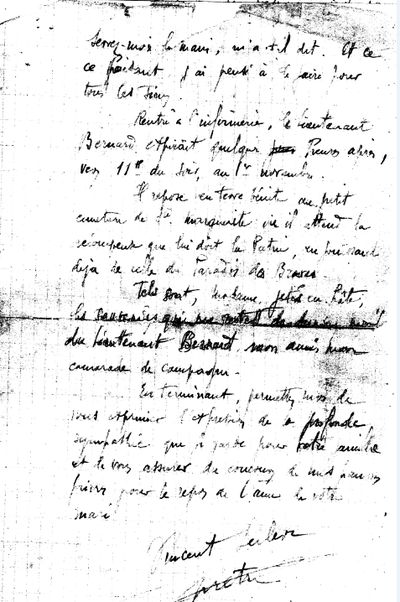 Serrez-moi la main, m'a-t-il dit. Et ce
ce faisant j'ai pensé à le faire pour
tous les siens
Rentré à l'infirmerie, le lieutenant
Bernard expirait quelques heures après,
vers 11h du soir, au 1er novembre.
Il repose en terre bénite au petit
cimetière de Ste Marguerite où il attend la
récompense que lui doit la Patrie, en jouissant
déjà de celle du Paradis des Braves.
Tels sont, Madame, jetés en hâte,
les souvenirs qui me
du lieutenant Bernard mon ami mon
camarade de campagne.
En terminant, permettez moi de
vous exprimer l'expression de profonde
sympathie que je garde pour votre
et de vous assurer du concours de mes
prières pour le repos de l'âme de votre
mari
Vincent
prêtre